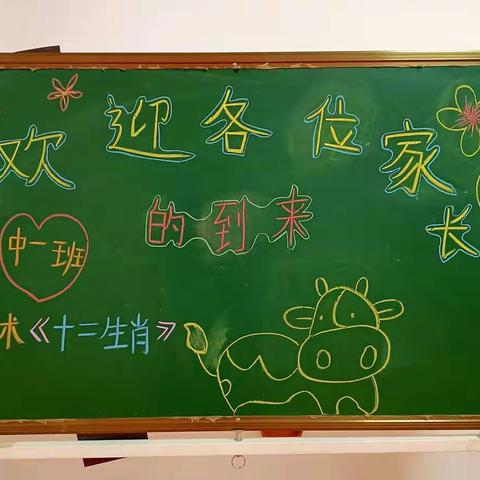 欢迎各位家长
的到来
中一班
术《十二生肖》